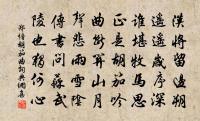 漢將留邊朔
遙遙歲序深
誰堪牧馬思
正是胡笳吟
曲斷關山月
聲悲雨雪陰
傳書問蘇武
陵也獨何心
鄭愔胡笳曲